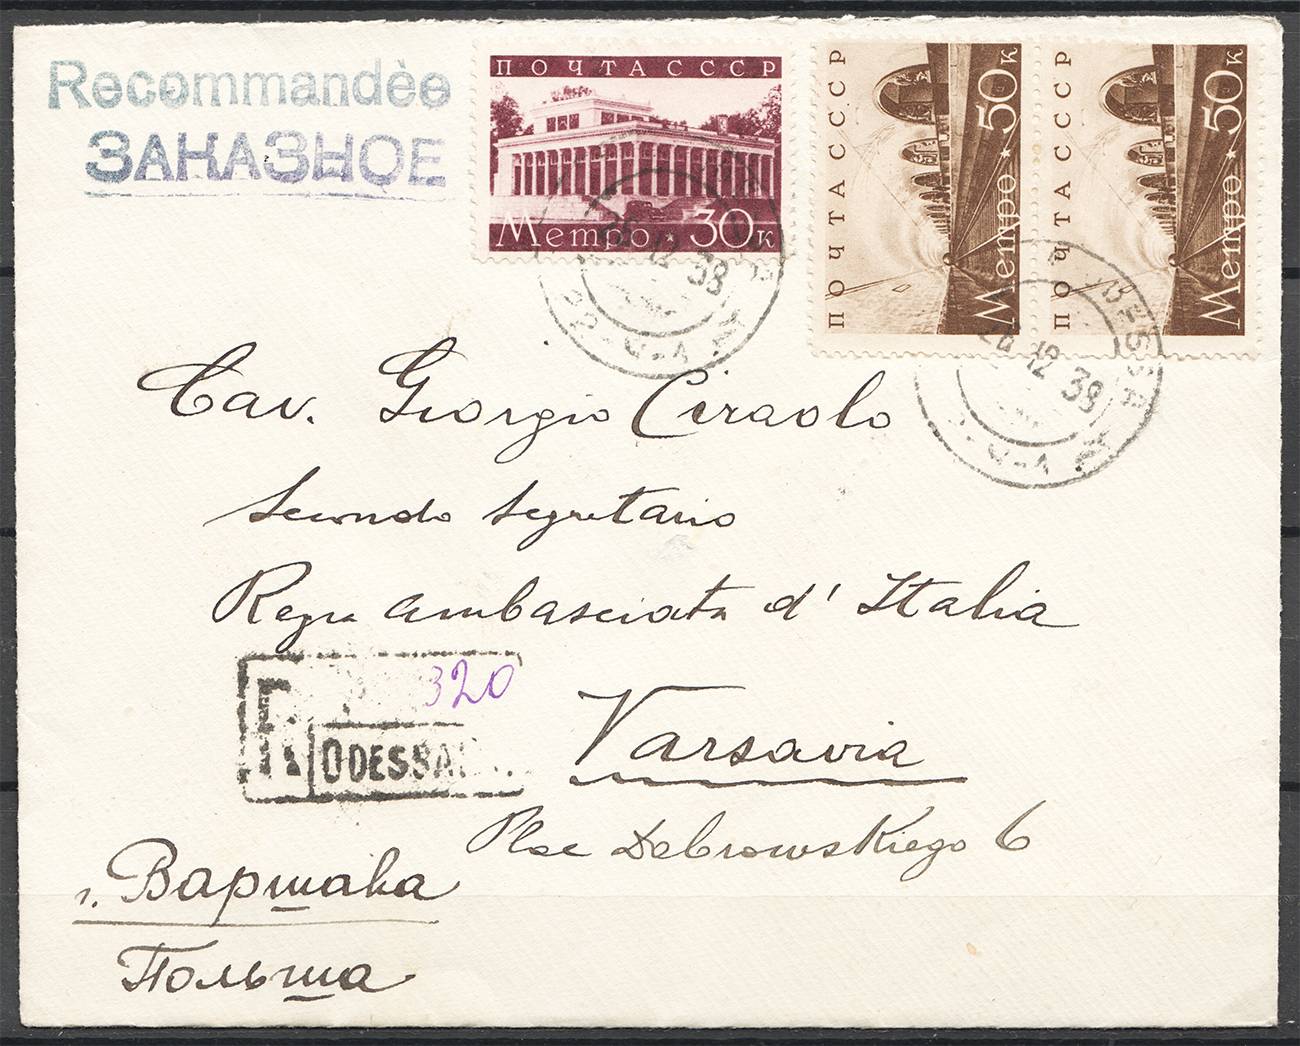 Recommandèe
ЗАКАЗНОЕ
ПОЧТА СССР
Метро 30 к
ПОЧТА СССР
Метро 50 к
ПОЧТА СССР
Метро 50 к
12 38
12 38
Cav. Giorgio Ciraolo
Secondo Segretario
Regia Ambasciata d' Italia
R 320
ODESSA
Varsavia
Plac Debrowskiego 6
г. Варшава
Польша